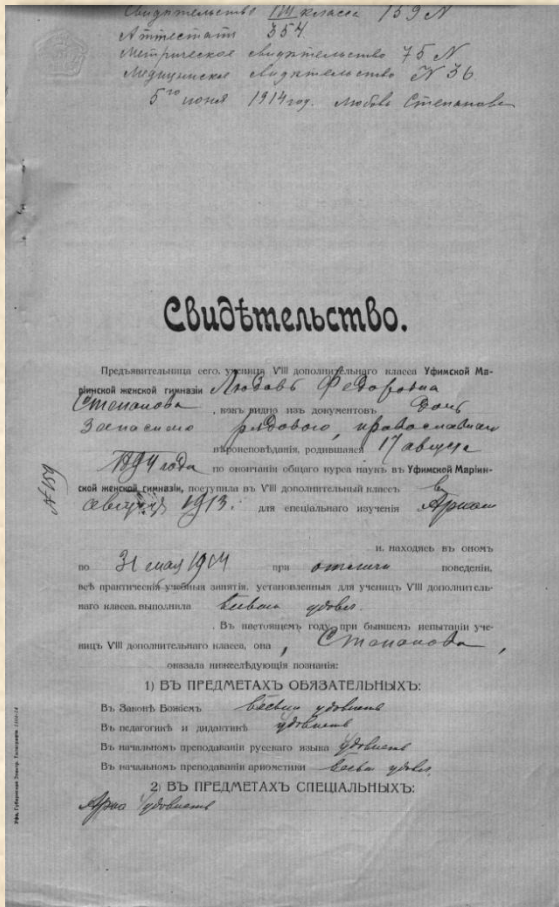 Свидѣтельство VIII класса 159 N
Аттестатъ 354
Метрическое свидѣтельство 75 N
Медицинское свидѣтельство N 36
5го іюня 1914 год. Любовь Степанова
Свидѣтельство.
Предъявительница сего, ученица VIII дополнительнаго класса Уфимской Ма-
ріинской женской гимназіи Любовь Федоровна
Степанова, какъ видно изъ документовъ дочь
запаснаго рядового, православнаго
вѣроисповѣданія, родившаяся 17 августа
1894 года по окончаніи общаго курса наукъ въ Уфимской Маріин-
ской женской гимназіи, поступила въ VIII дополнительный классъ въ
августѣ 1913 г. для спеціальнаго изученія
и, находясь въ ономъ
по 31 мая 1914 при поведеніи,
всѣ практическія учебныя занятія, установленныя для ученицъ VIII дополнитель-
наго класса, выполнила весьма удовл.
Въ настоящемъ году, при бывшемъ испытаніи уче-
ницъ VIII дополнительнаго класса, она, Степанова,
оказала нижеслѣдующія познанія:
1) ВЪ ПРЕДМЕТАХЪ ОБЯЗАТЕЛЬНЫХЪ:
Въ Законѣ Божіемъ весьма удовлетв
Въ педагогикѣ и дидактикѣ удовлетв
Въ начальномъ преподаваніи русскаго языка удовлетв
Въ начальномъ преподаваніи ариѳметики весьма удовл.
2) ВЪ ПРЕДМЕТАХЪ СПЕЦІАЛЬНЫХЪ:
удовлетв
№ 159